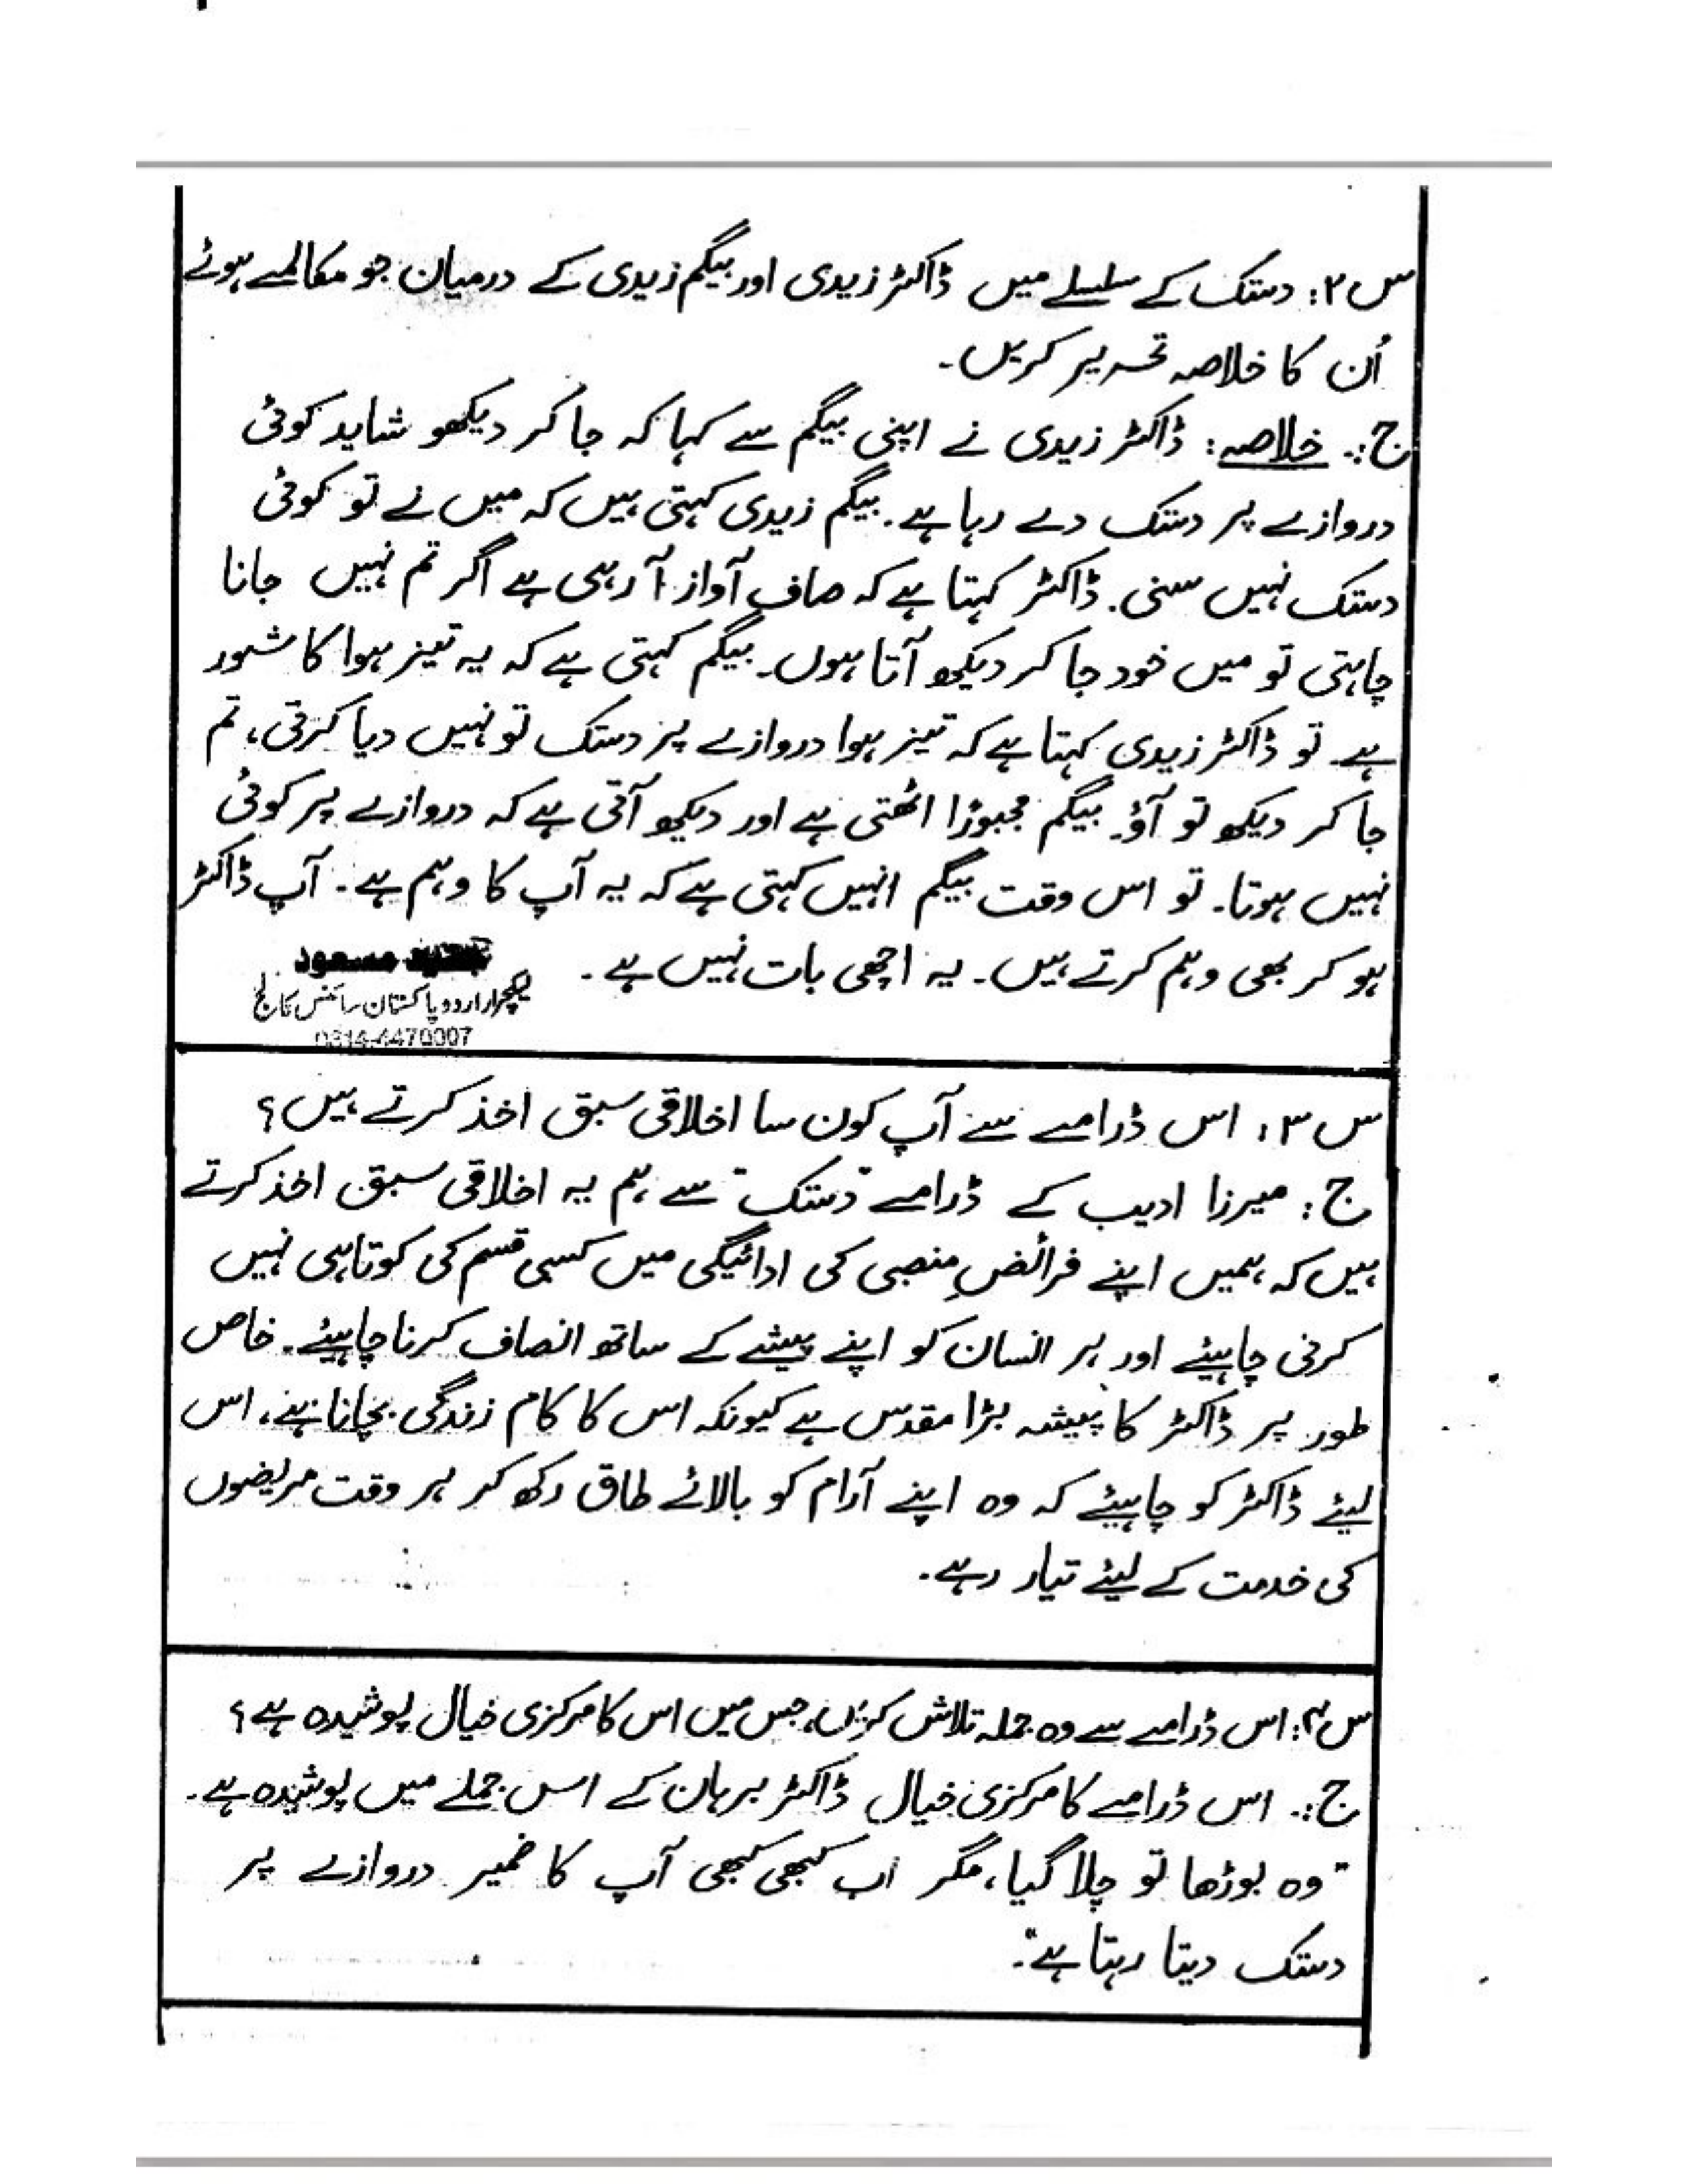 س۲: دستک کے سلسلے میں ڈاکٹر زیدی اور بیگم زیدی کے درمیان جو مکالمے ہوئے
اُن کا خلاصہ تحریر کریں۔
ج:۔ خلاصہ: ڈاکٹر زیدی نے اپنی بیگم سے کہا کہ جا کر دیکھو شاید کوئی
دروازے پر دستک دے رہا ہے۔ بیگم زیدی کہتی ہیں کہ میں نے تو کوئی
دستک نہیں سنی۔ ڈاکٹر کہتا ہے کہ صاف آواز آ رہی ہے اگر تم نہیں جانا
چاہتی تو میں خود جا کر دیکھ آتا ہوں۔ بیگم کہتی ہے کہ یہ تیز ہوا کا شور
ہے تو ڈاکٹر زیدی کہتا ہے کہ تیز ہوا دروازے پر دستک تو نہیں دیا کرتی، تم
جا کر دیکھ تو آؤ۔ بیگم مجبوراً اٹھتی ہے اور دیکھ آتی ہے کہ دروازے پر کوئی
نہیں ہوتا۔ تو اس وقت بیگم انہیں کہتی ہے کہ یہ آپ کا وہم ہے۔ آپ ڈاکٹر
ہو کر بھی وہم کرتے ہیں۔ یہ اچھی بات نہیں ہے۔
مسعود
لیکچرار اردو پاکستان سائنس کالج
س۳: اس ڈرامے سے آپ کون سا اخلاقی سبق اخذ کرتے ہیں؟
ج: میرزا ادیب کے ڈرامے "دستک" سے ہم یہ اخلاقی سبق اخذ کرتے
ہیں کہ ہمیں اپنے فرائضِ منصبی کی ادائیگی میں کسی قسم کی کوتاہی نہیں
کرنی چاہیئے اور ہر انسان کو اپنے پیشے کے ساتھ انصاف کرنا چاہیئے۔ خاص
طور پر ڈاکٹر کا پیشہ بڑا مقدس ہے کیونکہ اس کا کام زندگی بچانا ہے، اس
لیئے ڈاکٹر کو چاہیئے کہ وہ اپنے آرام کو بالائے طاق رکھ کر ہر وقت مریضوں
کی خدمت کے لیئے تیار رہے۔
س۴: اس ڈرامے سے وہ جملہ تلاش کریں، جس میں اس کا مرکزی خیال پوشیدہ ہے؟
ج:۔ اس ڈرامے کا مرکزی خیال ڈاکٹر برہان کے اس جملے میں پوشیدہ ہے۔
"وہ بوڑھا تو چلا گیا، مگر اب کبھی کبھی آپ کا ضمیر دروازے پر
دستک دیتا رہتا ہے"۔